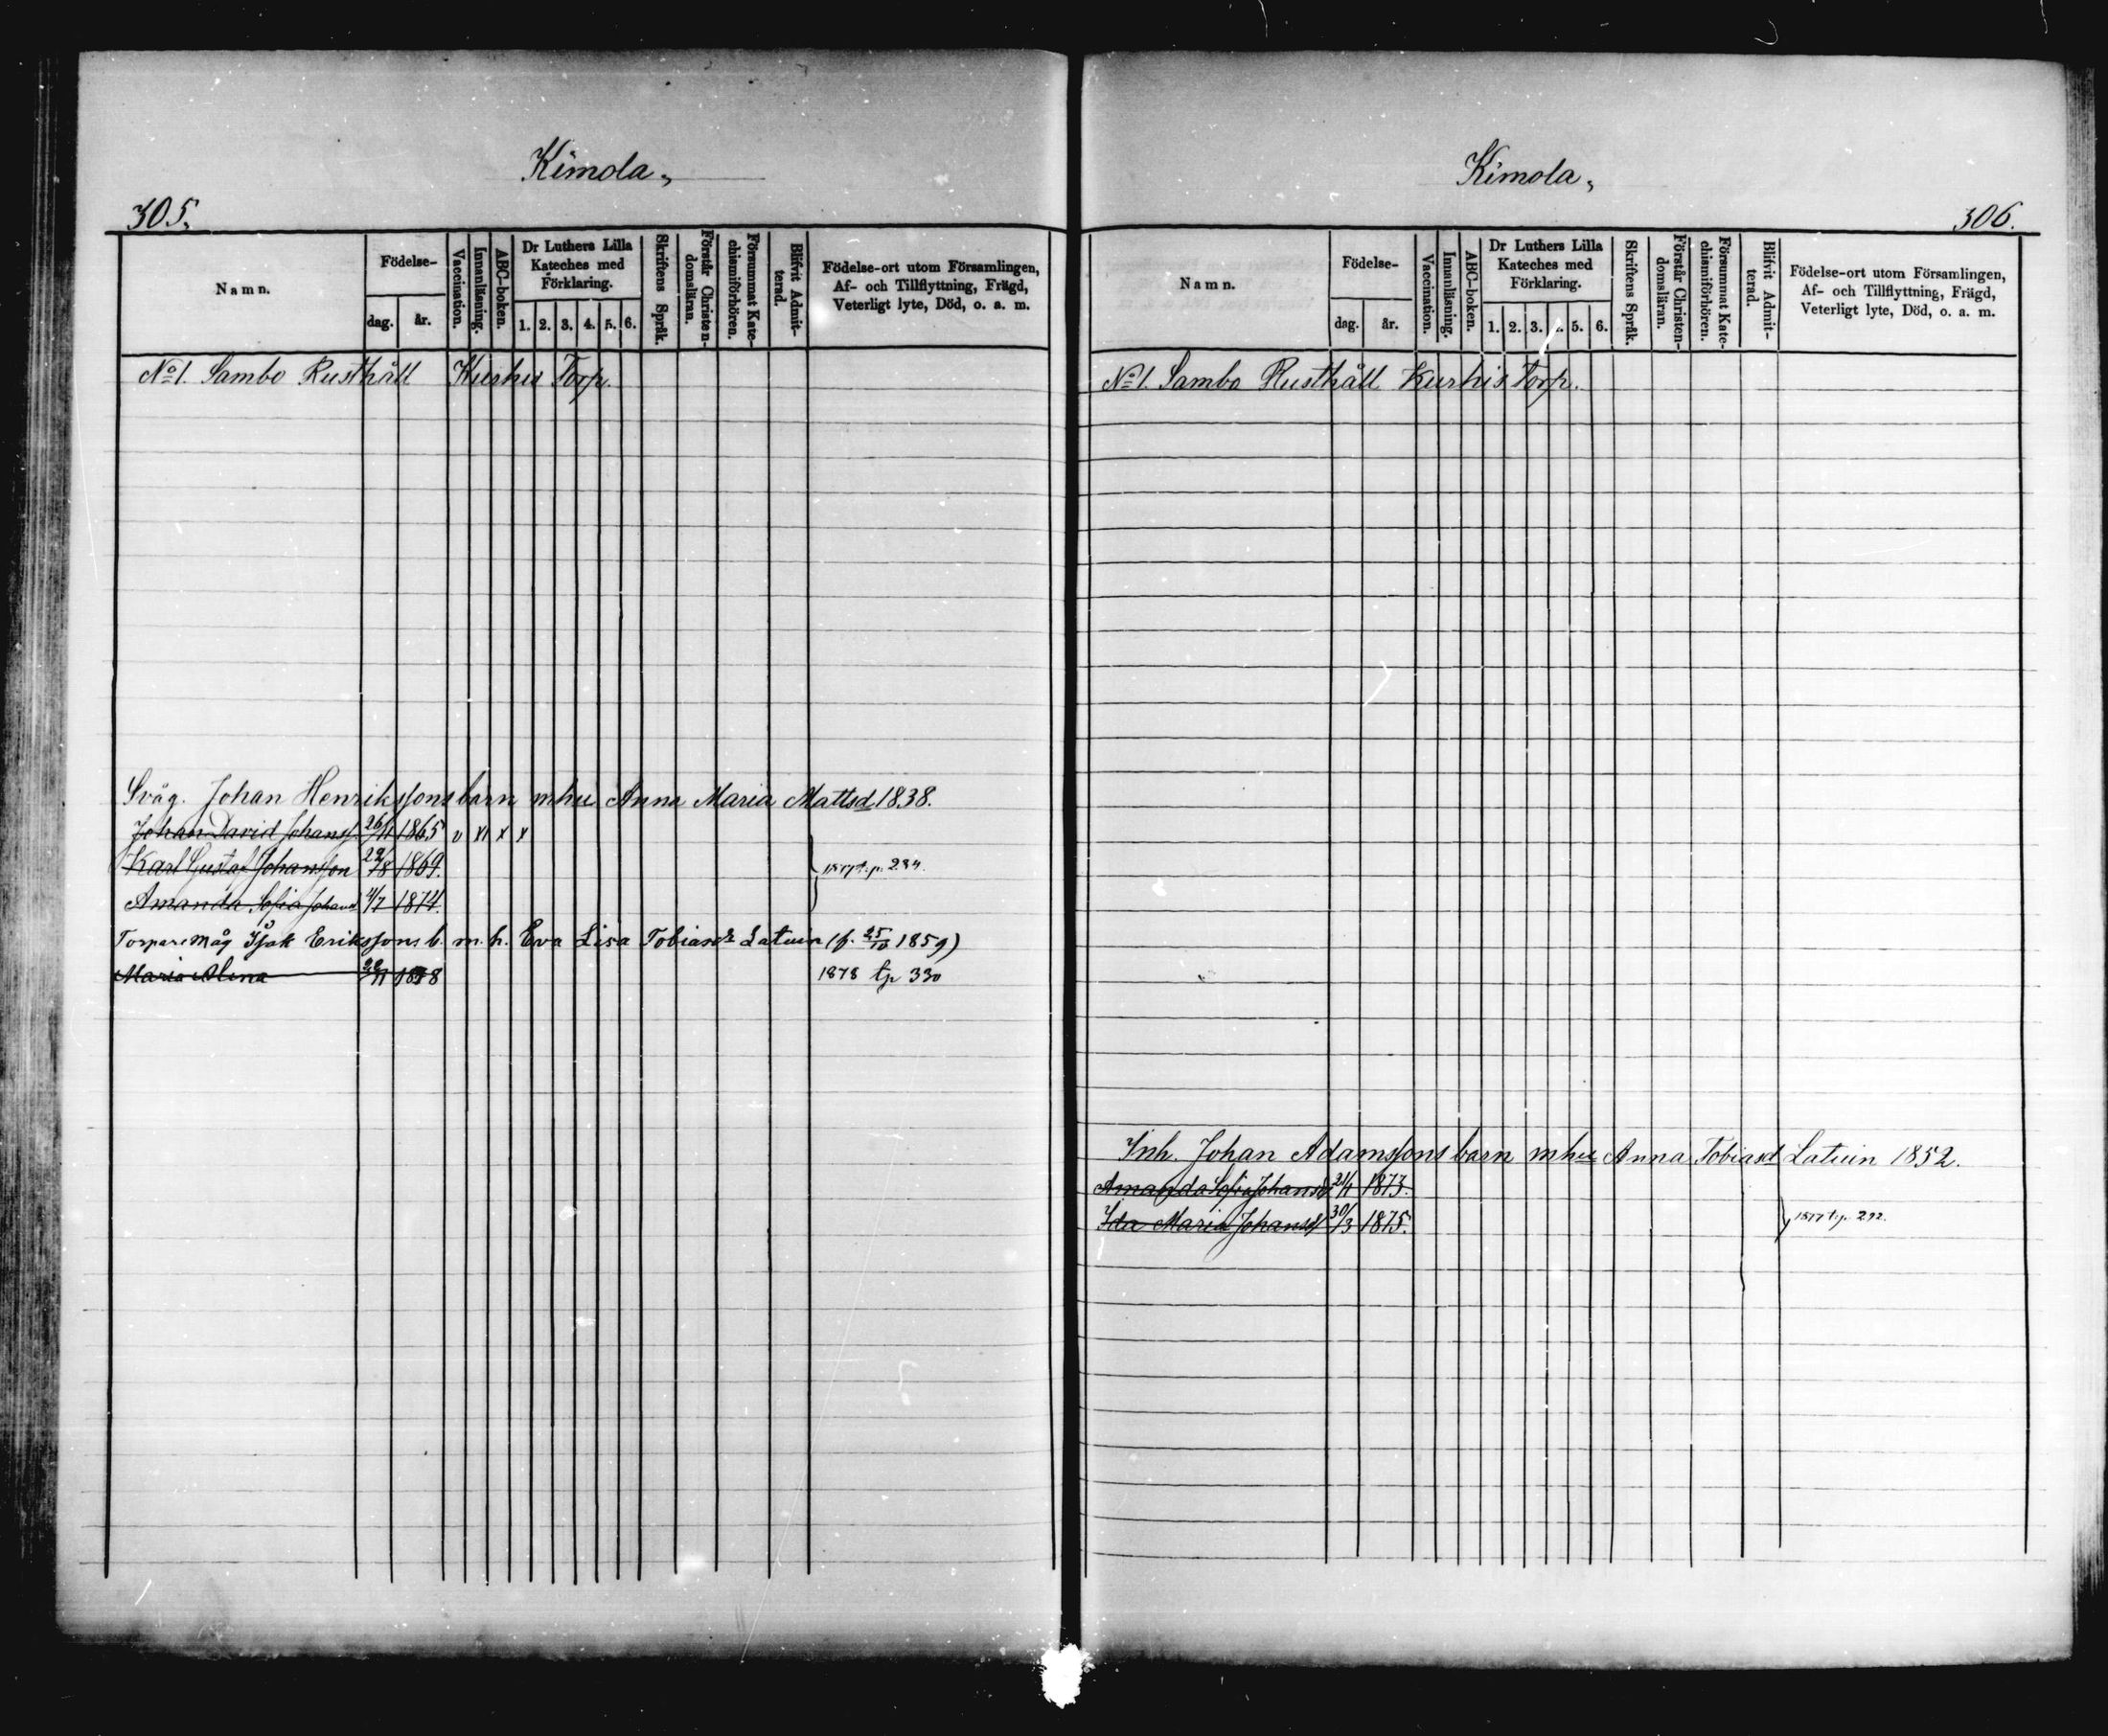 Kimola,
305.
Namn.
Födelse-
dag. år.
Vaccination.
Innanläsning.
ABC-boken.
Dr Luthers Lilla
Kateches med
Förklaring.
1. 2. 3. 4. 5. 6.
Skriftens Språk.
Förstår Christen-
domsläran.
Försummat Kate-
chismiförhören.
Blifvit Admit-
terad.
Födelse-ort utom Församlingen,
Af- och Tillflyttning, Frägd,
Veterligt lyte, Död, o. a. m.
No 1. Sambo Rusthåll Kurhis Torp.
Svåg. Johan Henrikssons barn mhu Anna Maria Mattsd 1838.
Johan David Johanss 26/11 1865 v x x x
Karl Gustaf Johansson 22/8 1869.
1877 t.p. 284.
Amanda Sofia Johansd 4/7 1874.
Torpare Måg Isak Erikssons b. m. h. Eva Lisa Tobiasdr Latuin (f. 25/10 1859)
Maria Alina 22/11 1878 1878 tp 330
Kimola,
306.
Namn.
Födelse-
dag. år.
Vaccination.
Innanläsning.
ABC-boken.
Dr Luthers Lilla
Kateches med
Förklaring.
1. 2. 3. 5. 6.
Skriftens Språk.
Förstår Christen-
domsläran.
Försummat Kate-
chismiförhören.
Blifvit Admit-
terad.
Födelse-ort utom Församlingen,
Af- och Tillflyttning, Frägd,
Veterligt lyte, Död, o. a. m.
No 1. Sambo Rusthåll Kurhis Torp.
Inh. Johan Adamssons barn mhu Anna Tobiasd Latuin 1852.
Amanda Sofia Johansd 21/1 1873.
Ida Maria Johansd 30/3 1875. 1877 t.p. 292.